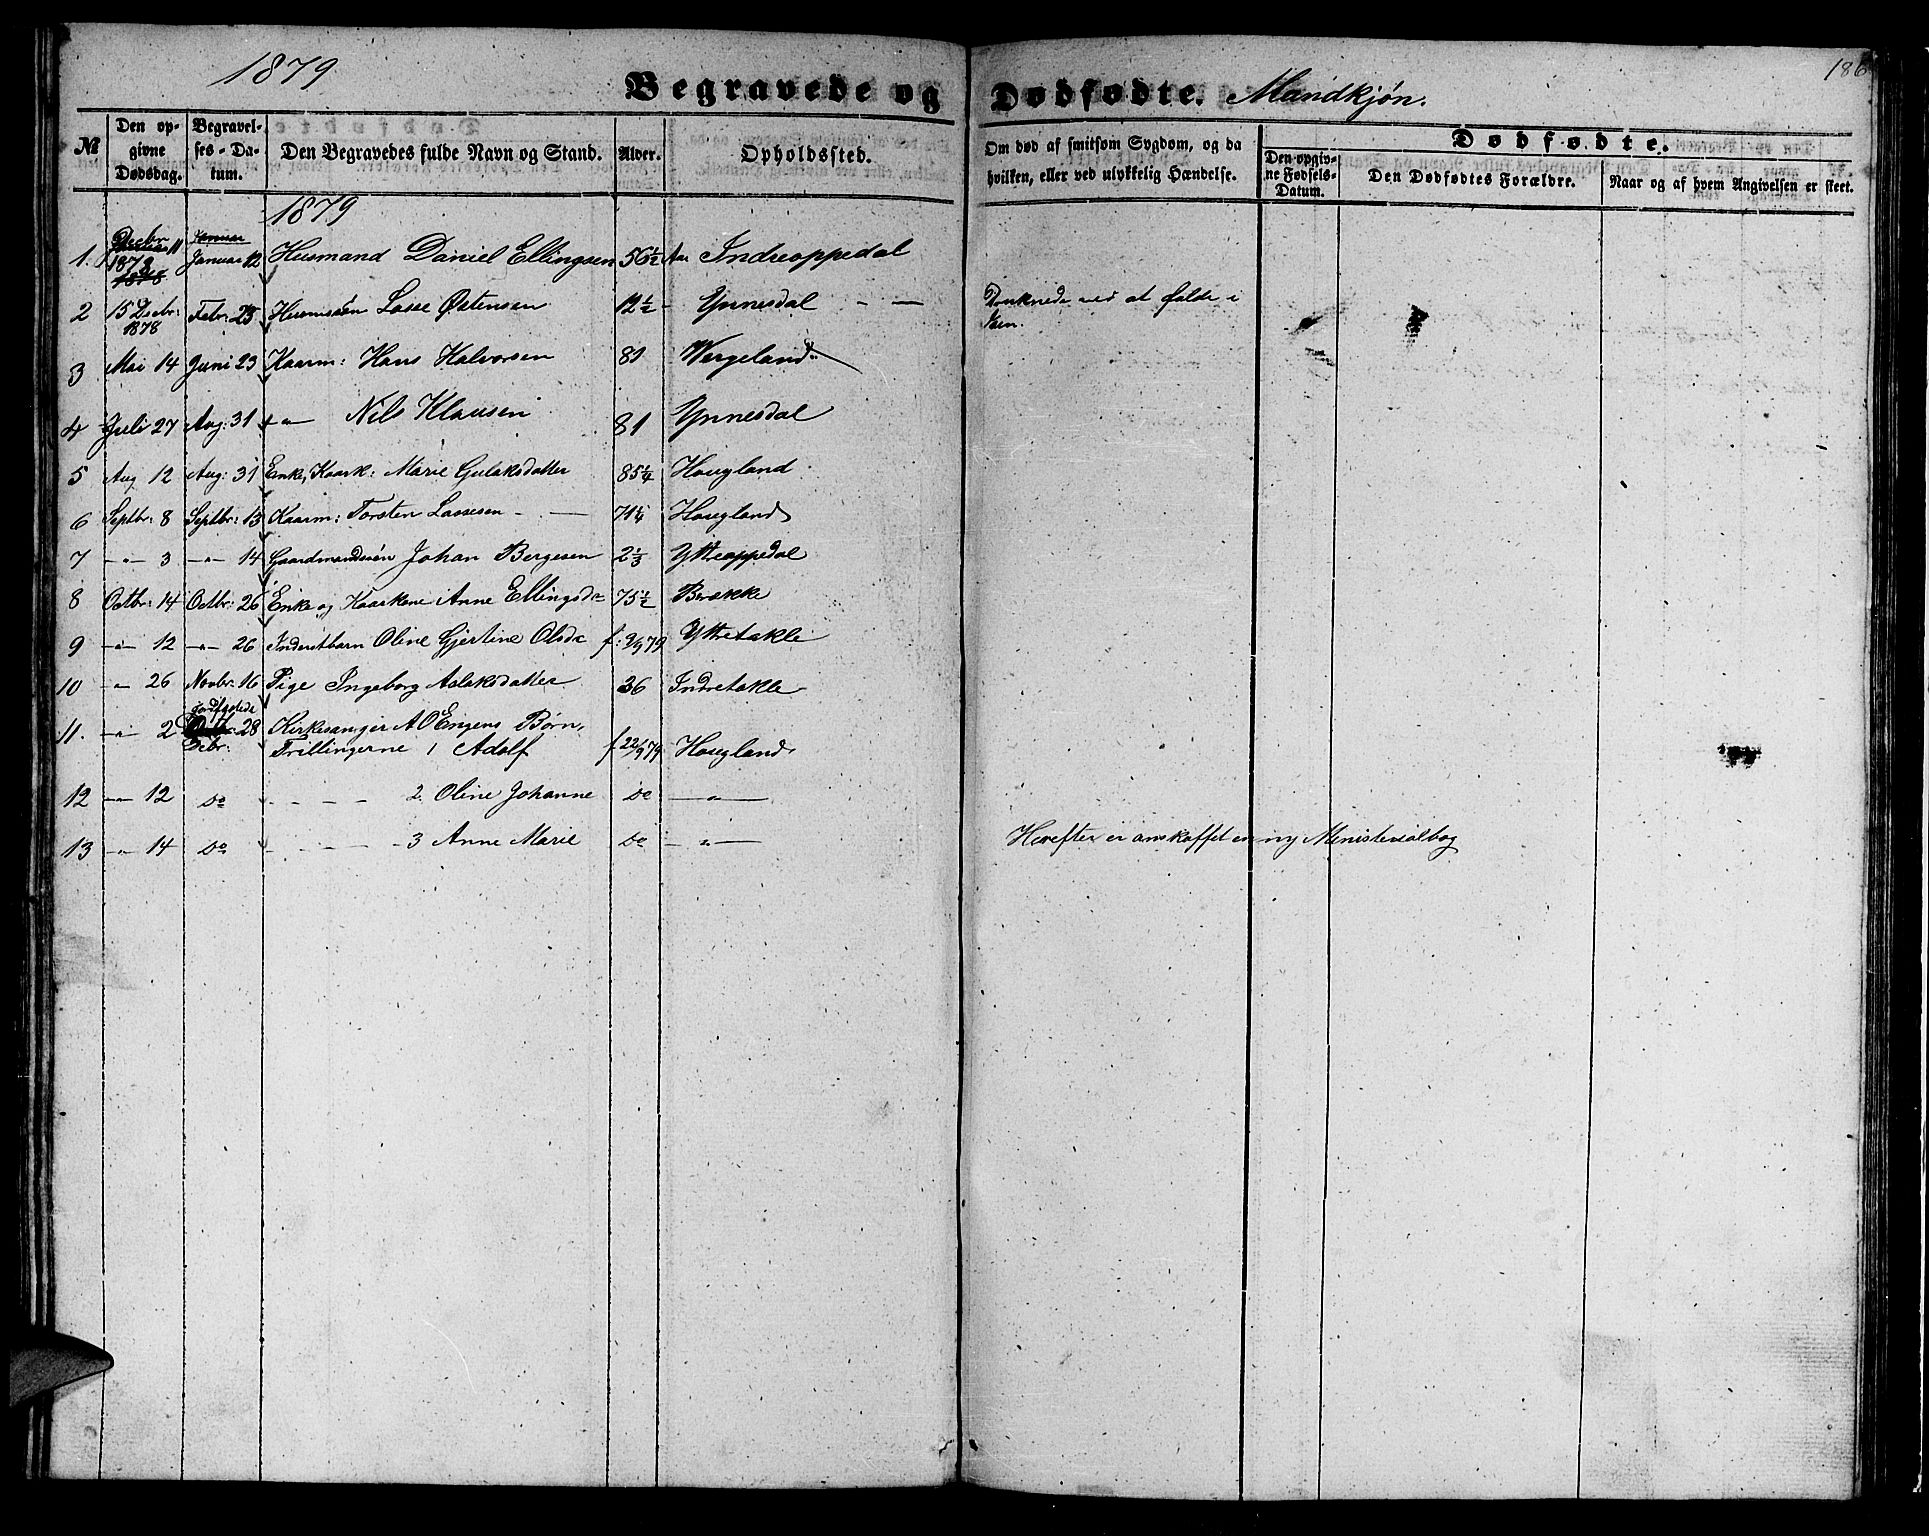 1879
Begravede og Dødfødte. Mandkjøn.
186
№ Den opgivne Dødsdag. Begravelses-Datum. Den Begravedes fulde Navn og Stand. Alder. Opholdssted. Om død af smitsom Sygdom, og da hvilken, eller ved ulykkelig Hændelse. Dødfødte. Den opgivne Fødsels-Datum. Den Dødfødtes Forældre. Naar og af hvem Angivelsen er skeet.
1879
1. Decbr 11 1878 Januar 12 Husmand Daniel Ellingsen 56½ Aar Indreoppedal
2 15 Decbr: 1878 Febr: 23 Huusmsøn Lasse Østensen 12½ - Ynnesdal - — Druknede ved at falde i
3 Mai 14 Juni 23 Kaarm: Hans Halvorsen 81 Wergeland
4 Juli 27 Aug: 31 -"- Nils Klausen 81 Ynnesdal
5 Aug 12 Aug: 31 Enke, Kaark: Marie Gulaksdatter 85¼ Hougland
6 Septbr: 8 Septbr: 13 Kaarm: Torsten Lassesen - — 71¼ Hougland
7 -"- 3 -"- 14 Gaardmandssøn Johan Bergesen 2⅓ Ytreoppedal
8 Octbr: 14 Octbr: 26 Enke og Kaarkone Anne Ellingsdr 75½ Brække
9 -"- 12 -"- 26 Inderstbarn Oline Gjertine Olsdr f: 9/9 79 Ytretakle
10 -"- 26 Novbr: 16 Pige Ingeborg Aslaksdatter 36 Indretakle
11. -"- 2 jordfæstede Decbr: 28 Kirkesanger A O Engens Børn,
Trillingerne 1 Adolf f 22/9 79 Hougland
12 -"- 12 Do - - - - 2. Oline Johanne Do —"—
13 -"- 14 Do - - - - 3 Anne Marie Do —"—
Herefter er anskaffet en ny Ministerialbog